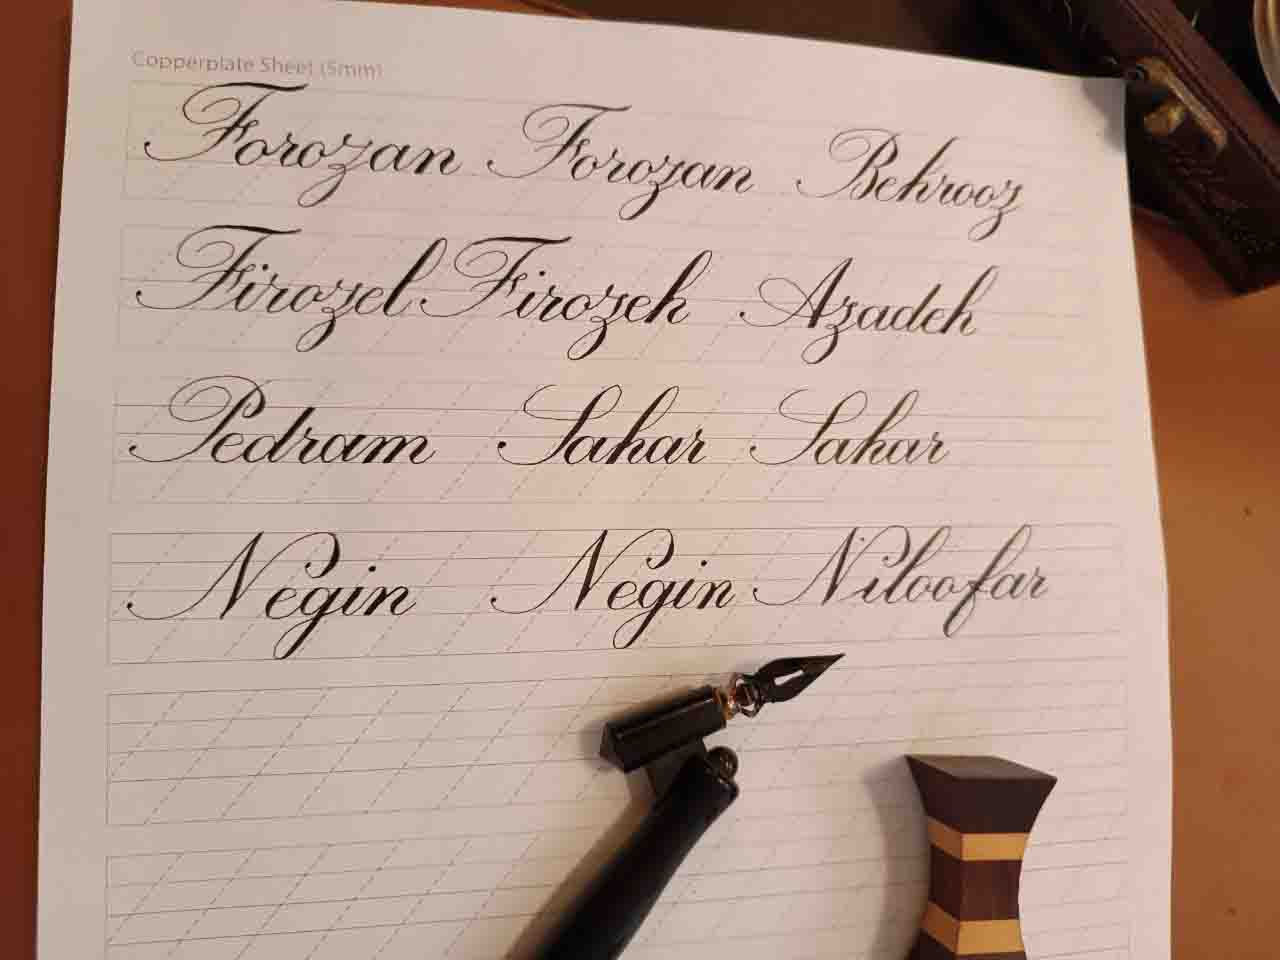 Copperplate Sheet (5mm)
Forozan Forozan Behrooz
Firozel Firozeh Azadeh
Pedram Sahar Sahar
Negin Negin Niloofar